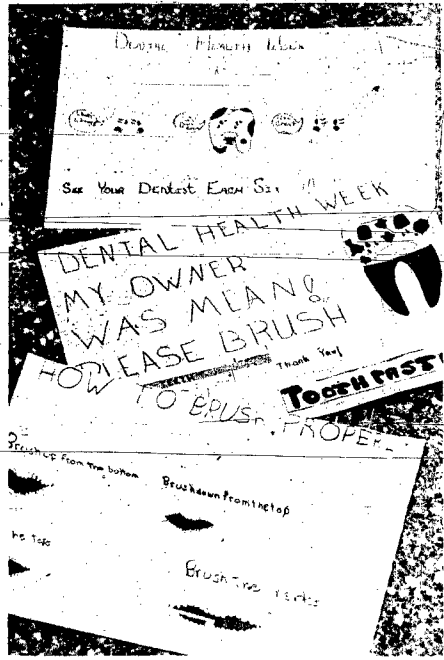 DENTAL HEALTH WEEK
SEE YOUR DENTEST EACH SIX
DENTAL HEALTH WEEK
MY OWNER
WAS MEAN!
PLEASE BRUSH
TEETH
Thank You!
TOOTHPAST
HOW TO BRUSH PROPER
Brush up from the bottom
Brush down from the top
he tops
Brush the